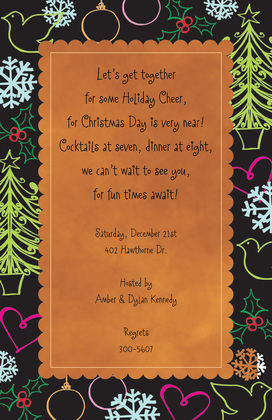 Let's get together
for some Holiday Cheer,
for Christmas Day is very near!
Cocktails at seven, dinner at eight,
we can't wait to see you,
for fun times await!
Saturday, December 21st
402 Hawthorne Dr.
Hosted by
Amber & Dylan Kennedy
Regrets
300-5607